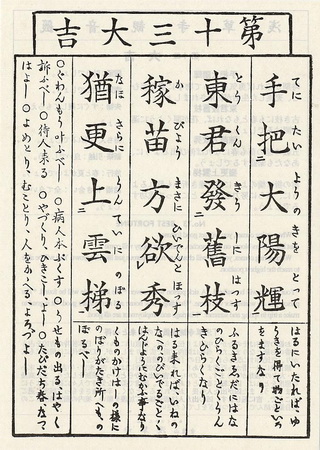 第十三大吉
手把大陽輝
てに たいようのきを とって
はるにいたれば、ゆ
うきを得て物ごといの
をますなり
東君發舊枝
とうくん きうしに はつす
ふるきゑだにはな
のひらくごとくうん
きひらくなり
稼苗方欲秀
かびょう まさに ひいでんと ほっす
はる来れば、いねの
なへののびでるごとく、
はんじようにむかふ事なり
猶更上雲梯
なほ さらに うんていに のぼる
くものかけはしの様に
のぼりがたき所へも、の
ぼるべし
○ぐわんもう叶ふべし ○病人本ぶくす ○うせもの出る、はやく
訴ふべし ○待人来る ○やづくり、ひきこしよし ○たびだち春、なつ
はよし ○よめとり、むことり、人をかゝへる、よろづよし